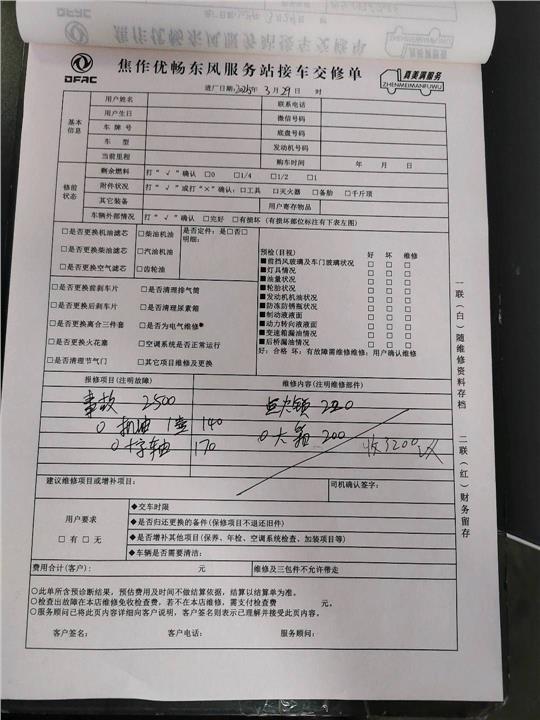 DFAC
焦作优畅东风服务站接车交修单
真美满服务
ZHENMEIMANFUWU
进厂日期:2025年 3 月 29 日 时
基本信息
用户姓名 联系电话
用户生日 微信号码
车 牌 号 底盘号码
车 型 发动机号码
当前里程 购车时间 年 月 日
修前状态
剩余燃料 打“ √ ”确认 □0 □1/4 □1/2 □1
附件状况 打“ √ ”或打“×”确认：□工具 □灭火器 □备胎 □千斤顶
其它装备 用户寄存物品
车辆外部情况 打“ √ ”确认 □完好 □有损坏（有损坏部位标注有下表左图）
□是否更换机油滤芯 □柴油机油 是否定件：是□否□
明细：
□是否更换柴油滤芯 □汽油机油
□是否更换空气滤芯 □齿轮油
□是否更换前刹车片 □是否清理排气筒
□是否更换后刹车片 □是否清理尿素箱
□是否更换离合三件套 □是否为电气维修
□是否更换火花塞 □空调系统是否正常运行
□是否清理节气门 □其它项目维修及更换
预检(目视) 好 坏 维修
■前挡风玻璃及车门玻璃状况 □ □ □
■灯具情况 □ □ □
■油量状况 □ □ □
■轮胎状况 □ □ □
■发动机机油状况 □ □ □
■防冻防锈瓶状况 □ □ □
■制动液液面 □ □ □
■动力转向液液面 □ □ □
■变速箱漏油情况 □ □ □
■后桥漏油情况 □ □ □
好：合格 坏：有故障需维修维修：用户确认维修
报修项目(注明故障) 维修内容(注明维修部件)
事故 2500 220
机油 1 140 大箱 200
十字轴 170 收3200
建议维修项目或增补项目： 司机确认签字：
用户要求
□ 有 □ 无
◆交车时限
◆是否归还更换的备件(保修项目不退还旧件)
◆是否增补其他项目(保养、年检、空调系统检查、加装项目等)
◆车辆是否需要清洁：
费用合计(客户)： 元 维修及三包件不允许带走
○此单所含预诊断结果，预估费用及时间不做结算依据，结算以结算单为准。
○检查出故障在本店维修免收检查费，若不在本店维修，需支付检查费 元。
○服务顾问已将此页内容详细向客户说明，客户签名则表示已理解并接受此页内容。
客户签名： 客户电话： 服务顾问：
一联（白）随维修资料存档 二联（红）财务留存